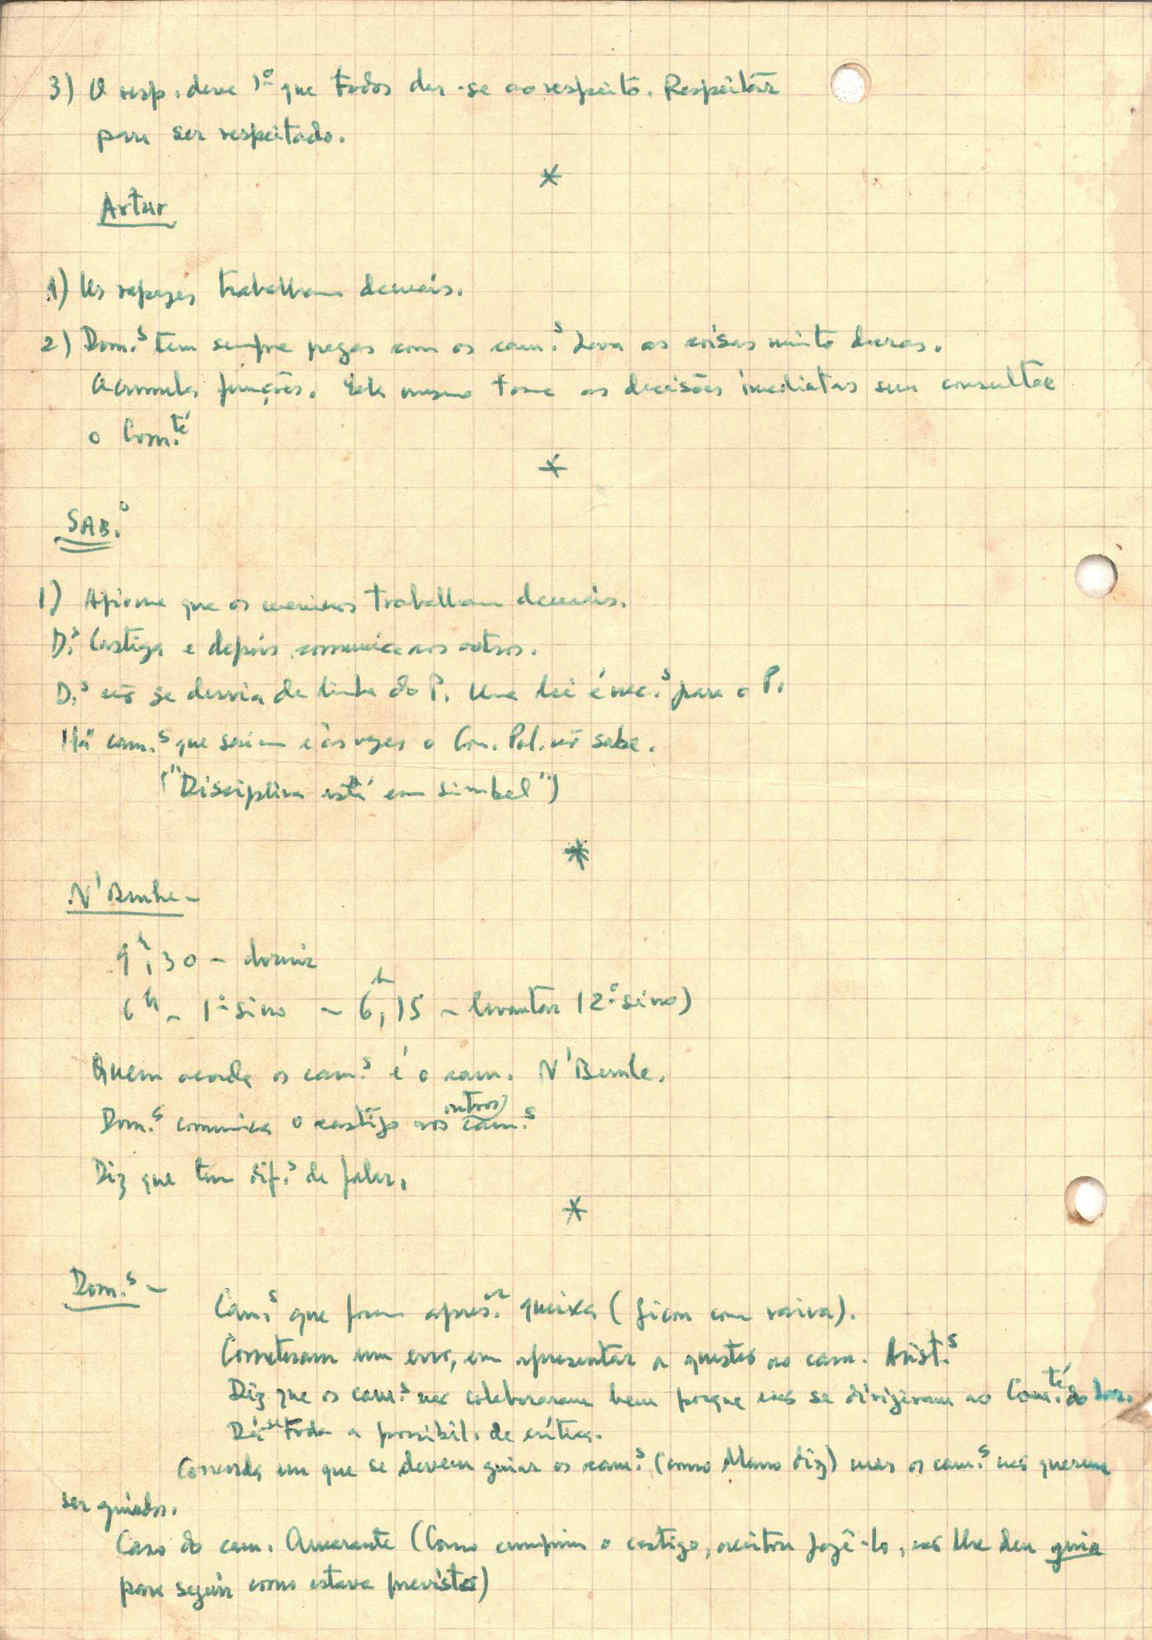 3) O resp. deve 1º que todos dar-se ao respeito. Respeitar
para ser respeitado.
*
Artur
1) Os rapazes trabalham demais.
2) Dom.ˢ tem sempre pegas com os cam.ˢ Leva as coisas muito duras.
Acumula funções. Ele mesmo toma as decisões imediatas sem consultar
o Com.té
*
SAB.º
1) Afirma que os meninos trabalham demais.
D.ˢ Castiga e depois comunica aos outros.
D.ˢ não se desvia da linha do P. Uma lei é nec.ˢ para o P.
Há cam.ˢ que saiem e às vezes o Com. Pol. não sabe.
("Disciplina está em simbel")
*
N'Bemle -
9h,30 - dormir
6h - 1º sino - 6h,15 - levantar (2º sino)
Quem acorda os cam.ˢ é o cam. N'Bemle.
Dom.ˢ comunica o castigo aos (outros) cam.ˢ
Diz que tem dif.ˢ de falar.
*
Dom.ˢ -
Cam.ˢ que foram apres.ar queixa (ficou com raiva).
Cometeram um erro, em apresentar a questão ao cam. Arist.ˢ
Diz que os cam.ˢ não colaboraram bem porque não se dirigiram ao Com.té do
Dá-se toda a possibil. de crítica.
Concorda em que se devem guiar os cam.ˢ (como Mano diz) mas os cam.ˢ não querem
ser guiados.
Caso do cam. Amarante (Como cumpriu o castigo, aceitou fazê-lo, não lhe deu guia
para seguir como estava previsto)